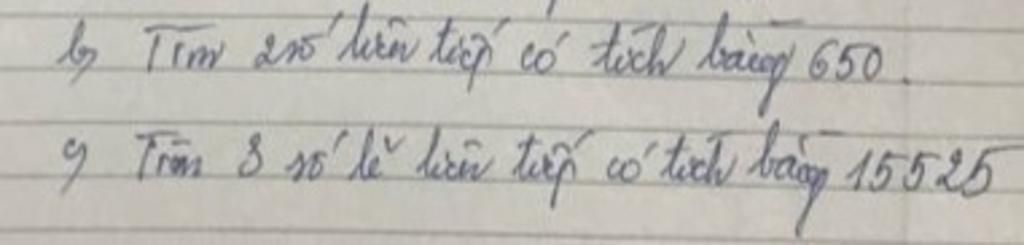 b, Tìm 2 số liên tiếp có tích bằng 650.
c, Tìm 3 số lẻ liên tiếp có tích bằng 15525